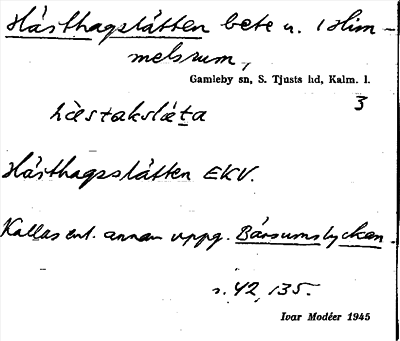 Hästhagslätten bete u. 1 Him-
melsrum,
Gamleby sn, S. Tjusts hd, Kalm. l.
3
hästakslæta
Hästhagsslätten EKV.
Kallas enl. annan uppg. Bärsumslyckan.
s. 42, 135.
Ivar Modéer 1945